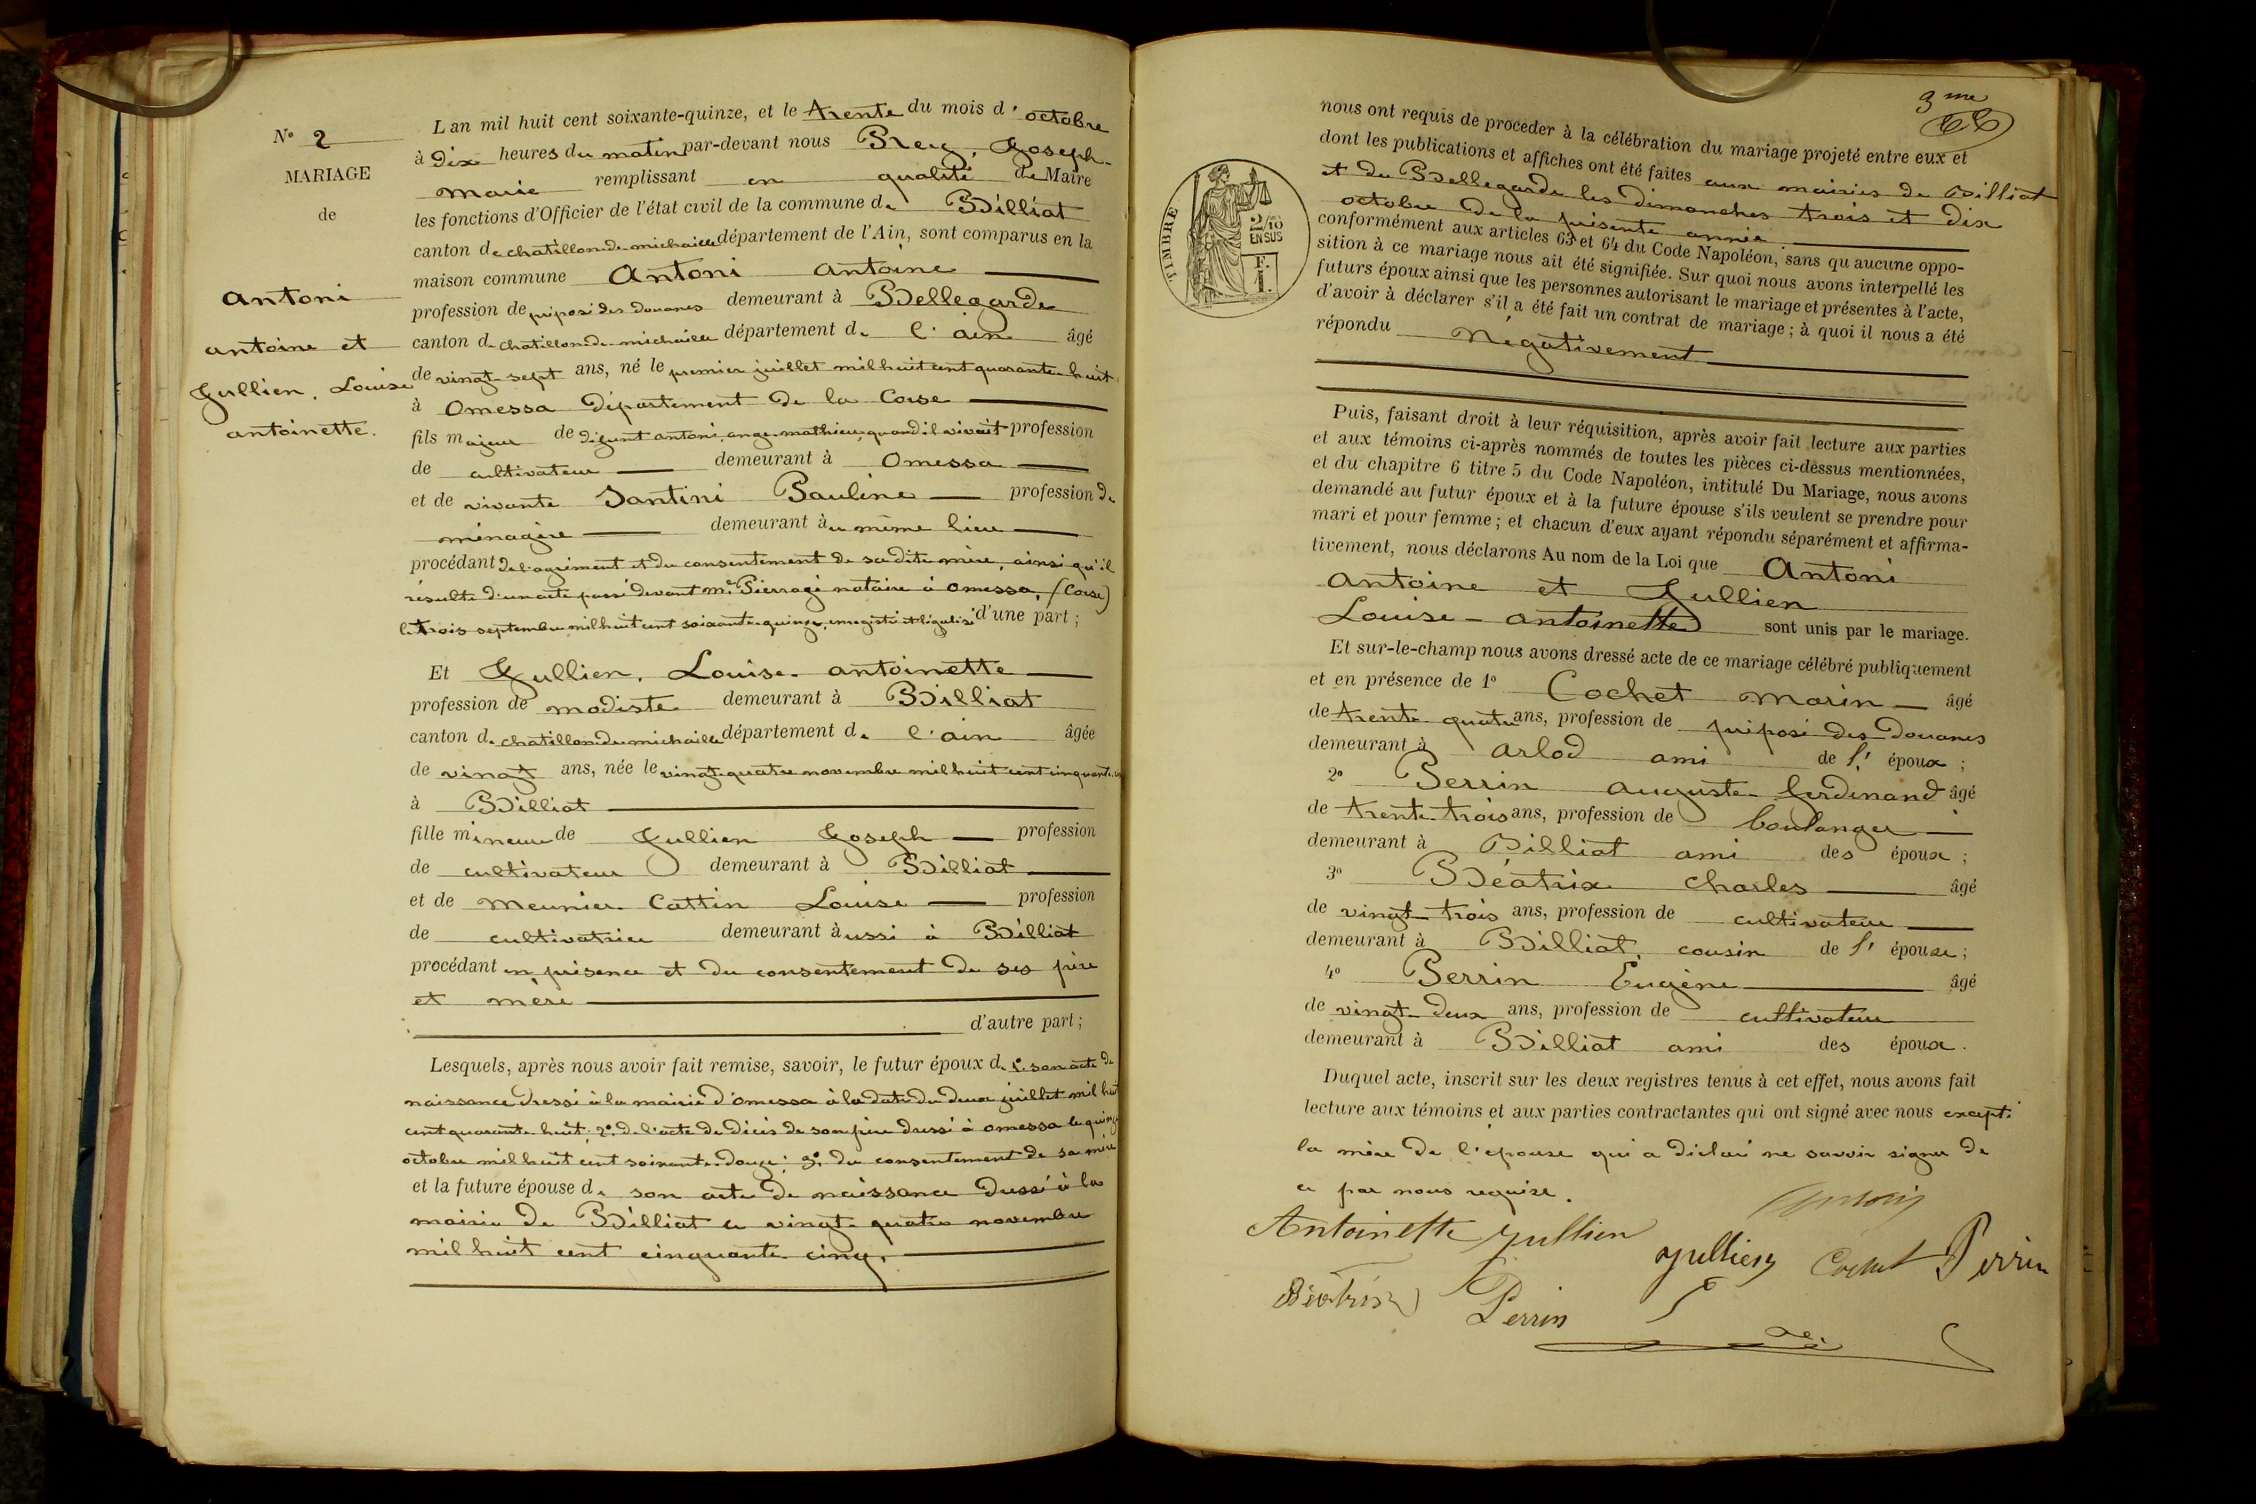 N° 2
MARIAGE
de
Antoni
antoine et
Jullien, Louise
antoinette.
L'an mil huit cent soixante-quinze, et le trente du mois d'octobre
à dix heures du matin par-devant nous Rey, Joseph-
marie remplissant en qualité de Maire
les fonctions d'Officier de l'état civil de la commune de Billiat
canton de chatillon-de-michaille département de l'Ain, sont comparus en la
maison commune Antoni antoine
profession de préposé des douanes demeurant à Bellegarde
canton de chatillon-de-michaille département de l'ain âgé
de vingt-sept ans, né le premier juillet mil huit cent quarante-huit
à Omessa département de la Corse
fils majeur de défunt antoni, ange-mathieu, quand il vivait profession
de cultivateur demeurant à Omessa
et de vivante Santini Pauline profession de
ménagère demeurant au même lieu
procédant de l'agrément et du consentement de sadite mère, ainsi qu'il
résulte d'un acte passé devant me Pierragi notaire à omessa, (Corse)
le trois septembre mil huit cent soixante-quinze, enregistré et légalisé d'une part;
Et Jullien, Louise-antoinette
profession de modiste demeurant à Billiat
canton de chatillon de michaille département de l'ain âgée
de vingt ans, née le vingt-quatre novembre mil huit cent cinquante-cinq
à Billiat
fille mineure de Jullien Joseph profession
de cultivateur demeurant à Billiat
et de Meunier-Cattin Louise profession
de cultivatrice demeurant aussi à Billiat
procédant en présence et du consentement de ses père
et mère
d'autre part;
Lesquels, après nous avoir fait remise, savoir, le futur époux de 1° son acte de
naissance dressé à la mairie d'omessa à la date du deux juillet mil huit
cent quarante-huit; 2° de l'acte de décès de son père dressé à omessa le quinze
octobre mil huit cent soixante-douze; 3° du consentement de sa mère
et la future épouse de son acte de naissance dressé à la
mairie de Billiat le vingt-quatre novembre
mil huit cent cinquante-cinq.
3me
nous ont requis de procéder à la célébration du mariage projeté entre eux et
dont les publications et affiches ont été faites aux mairies de Billiat
et de Bellegarde les dimanches trois et dix
octobre de la présente année.
conformément aux articles 63 et 64 du Code Napoléon, sans qu'aucune oppo-
sition à ce mariage nous ait été signifiée. Sur quoi nous avons interpellé les
futurs époux ainsi que les personnes autorisant le mariage et présentes à l'acte,
d'avoir à déclarer s'il a été fait un contrat de mariage; à quoi il nous a été
répondu Négativement
TIMBRE
2/10
EN SUS
F.
1.
Puis, faisant droit à leur réquisition, après avoir fait lecture aux parties
et aux témoins ci-après nommés de toutes les pièces ci-dessus mentionnées,
et du chapitre 6 titre 5 du Code Napoléon, intitulé Du Mariage, nous avons
demandé au futur époux et à la future épouse s'ils veulent se prendre pour
mari et pour femme; et chacun d'eux ayant répondu séparément et affirma-
tivement, nous déclarons Au nom de la Loi que Antoni
antoine et Jullien
Louise-antoinette sont unis par le mariage.
Et sur-le-champ nous avons dressé acte de ce mariage célébré publiquement
et en présence de 1° Cochet marin âgé
de trente-quatre ans, profession de préposé des douanes
demeurant à arlod ami de l'époux;
2° Perrin auguste-ferdinand âgé
de trente-trois ans, profession de boulanger
demeurant à Billiat ami des époux;
3° Béatrix charles âgé
de vingt-trois ans, profession de cultivateur
demeurant à Billiat, cousin de l'épouse;
4° Perrin Eugène âgé
de vingt-deux ans, profession de cultivateur
demeurant à Billiat ami des époux.
Duquel acte, inscrit sur les deux registres tenus à cet effet, nous avons fait
lecture aux témoins et aux parties contractantes qui ont signé avec nous excepté
la mère de l'épouse qui a déclaré ne savoir signer de
ce par nous requise.
Antoni
Antoinette Jullien
Jullien Cochet Perrin
Béatrix Perrin